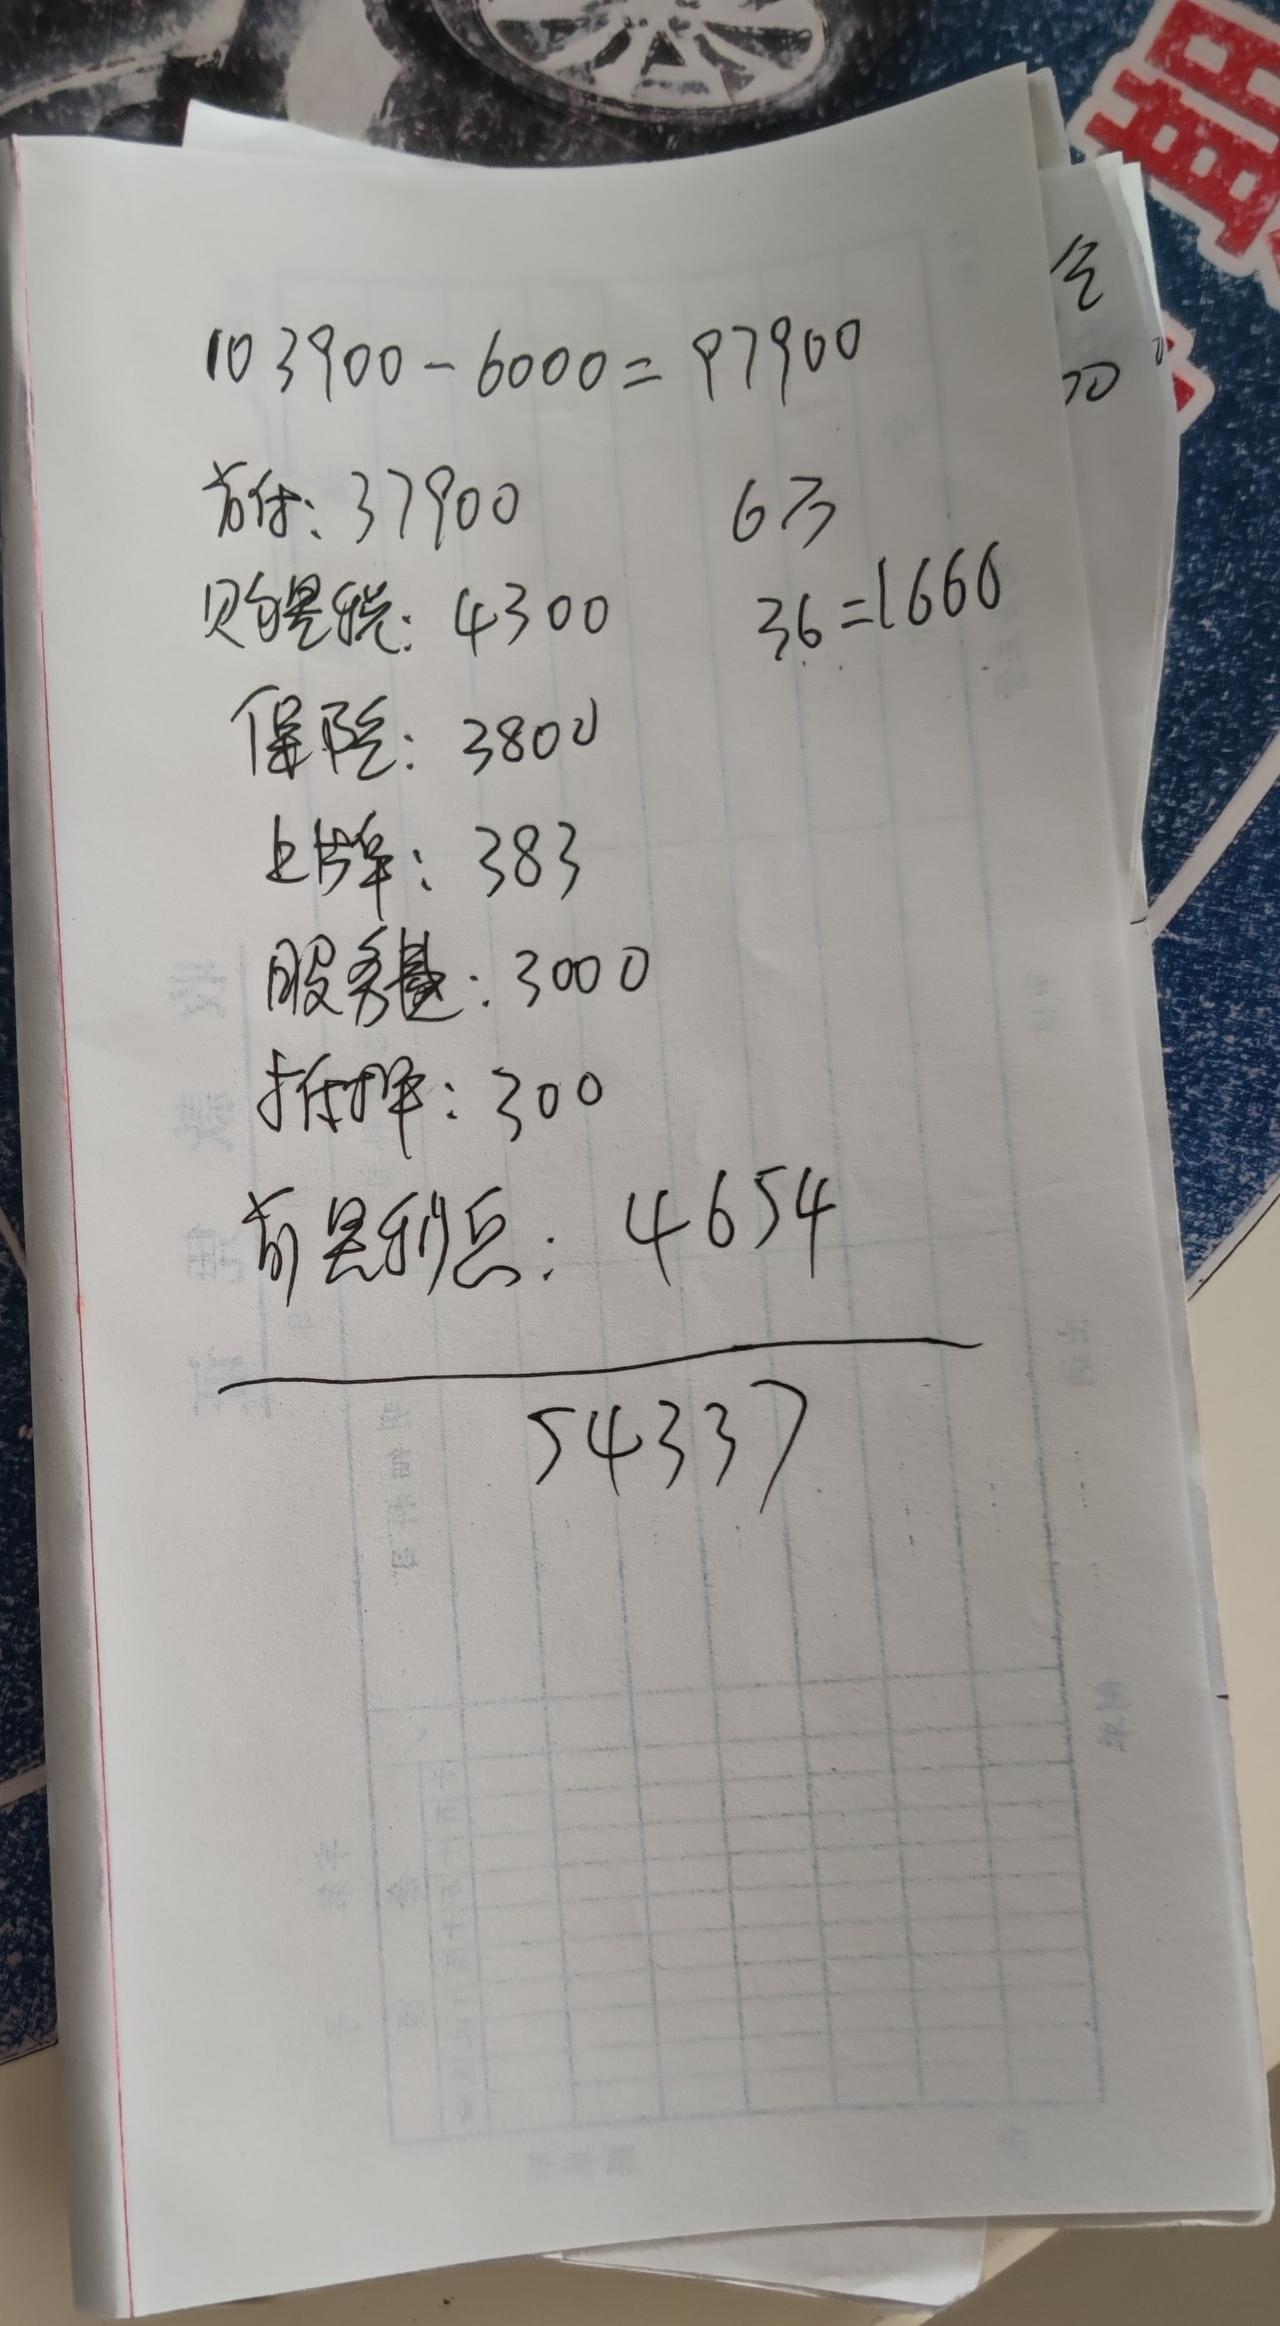 103900-6000=97900
首付: 37900
6万
购置税: 4300
36=1660
保险: 3800
上牌: 383
服务费: 3000
抵押: 300
前置利息: 4654
54337